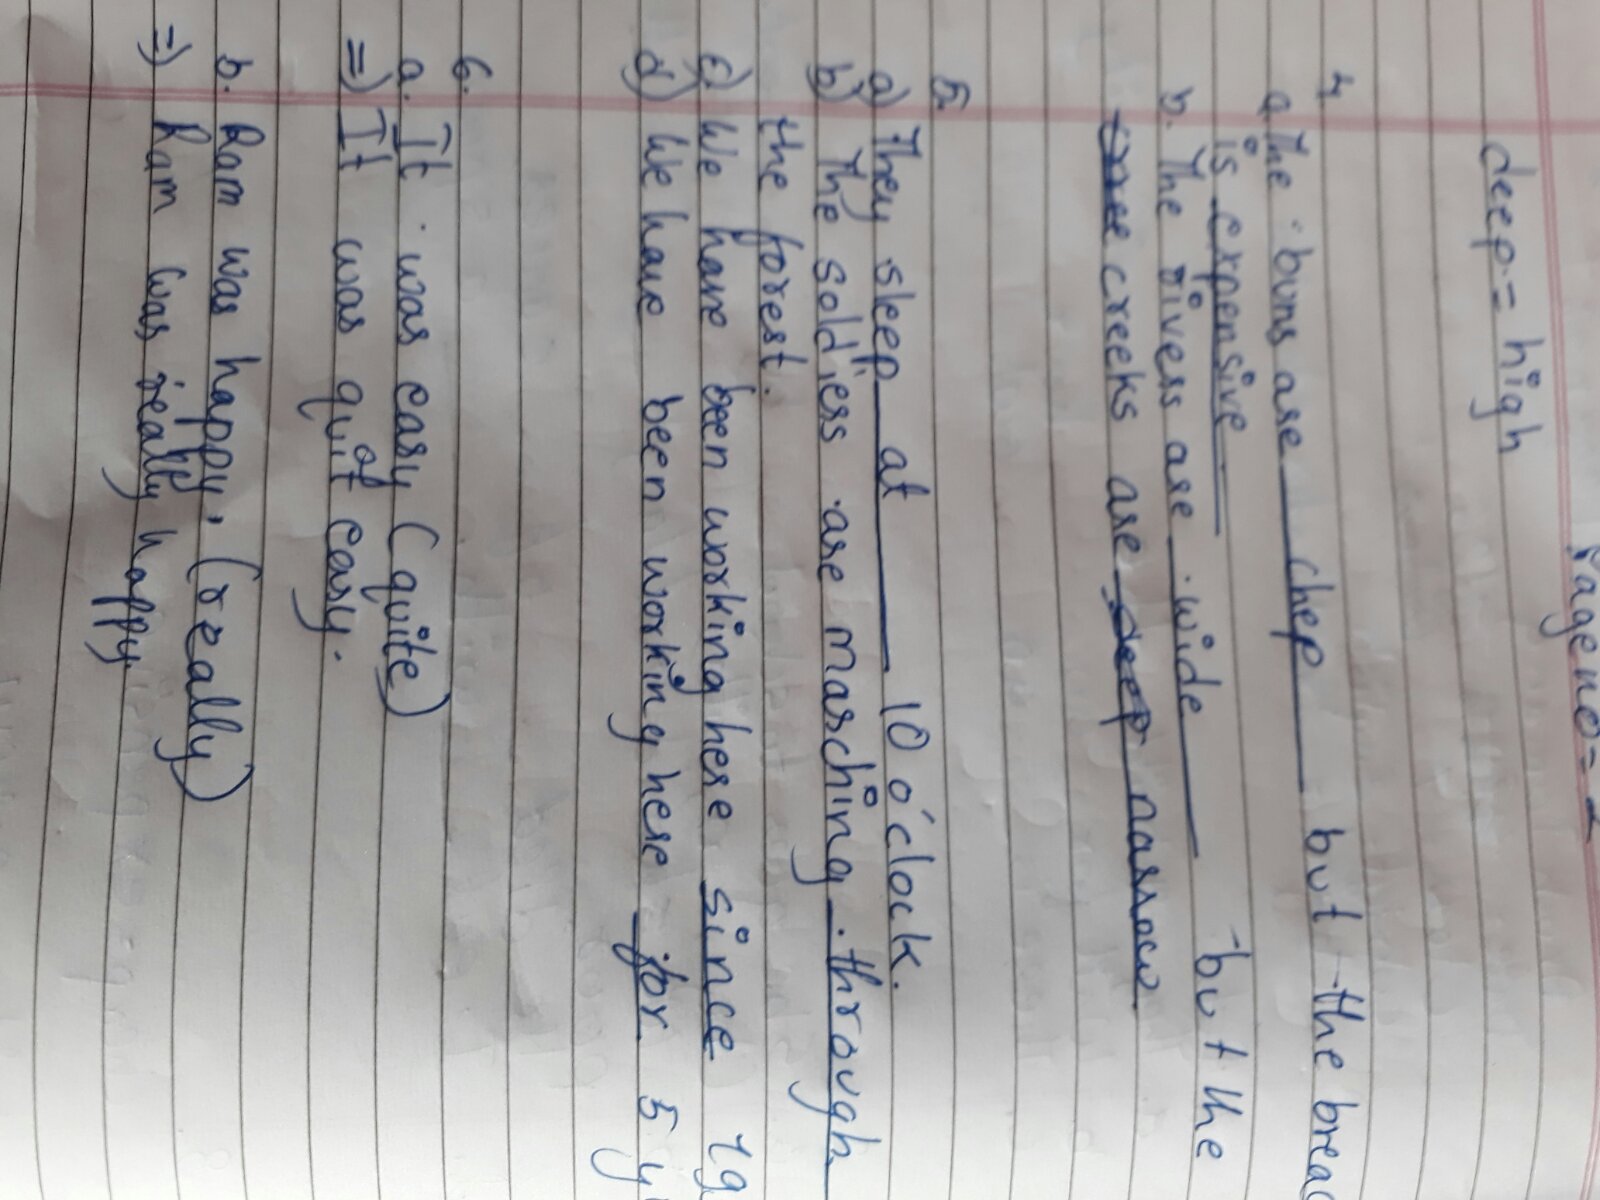 Page no = 2
deep = high
4
a. The buns are chep but the bread
is expensive
b. The rivers are wide but the
creeks are narrow.
5.
a) They sleep at 10 o'clock.
b) The soldiers are marching through
the forest.
c) We have been working here since 19
d) We have been working here for 5 y
6.
a. It was easy (quite)
=) It was quit easy.
b. Ram was happy. (really)
=) Ram was really happy